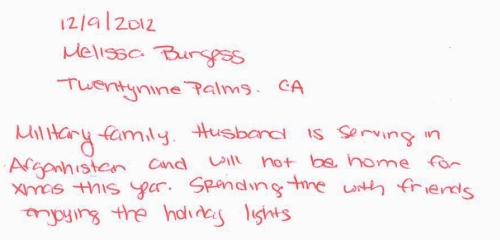 12/9/2012
Melissa Burgess
Twentynine Palms. CA
Military family. Husband is serving in
Afganhistan and will not be home for
xmas this year. Spending time with friends
enjoying the holiday lights